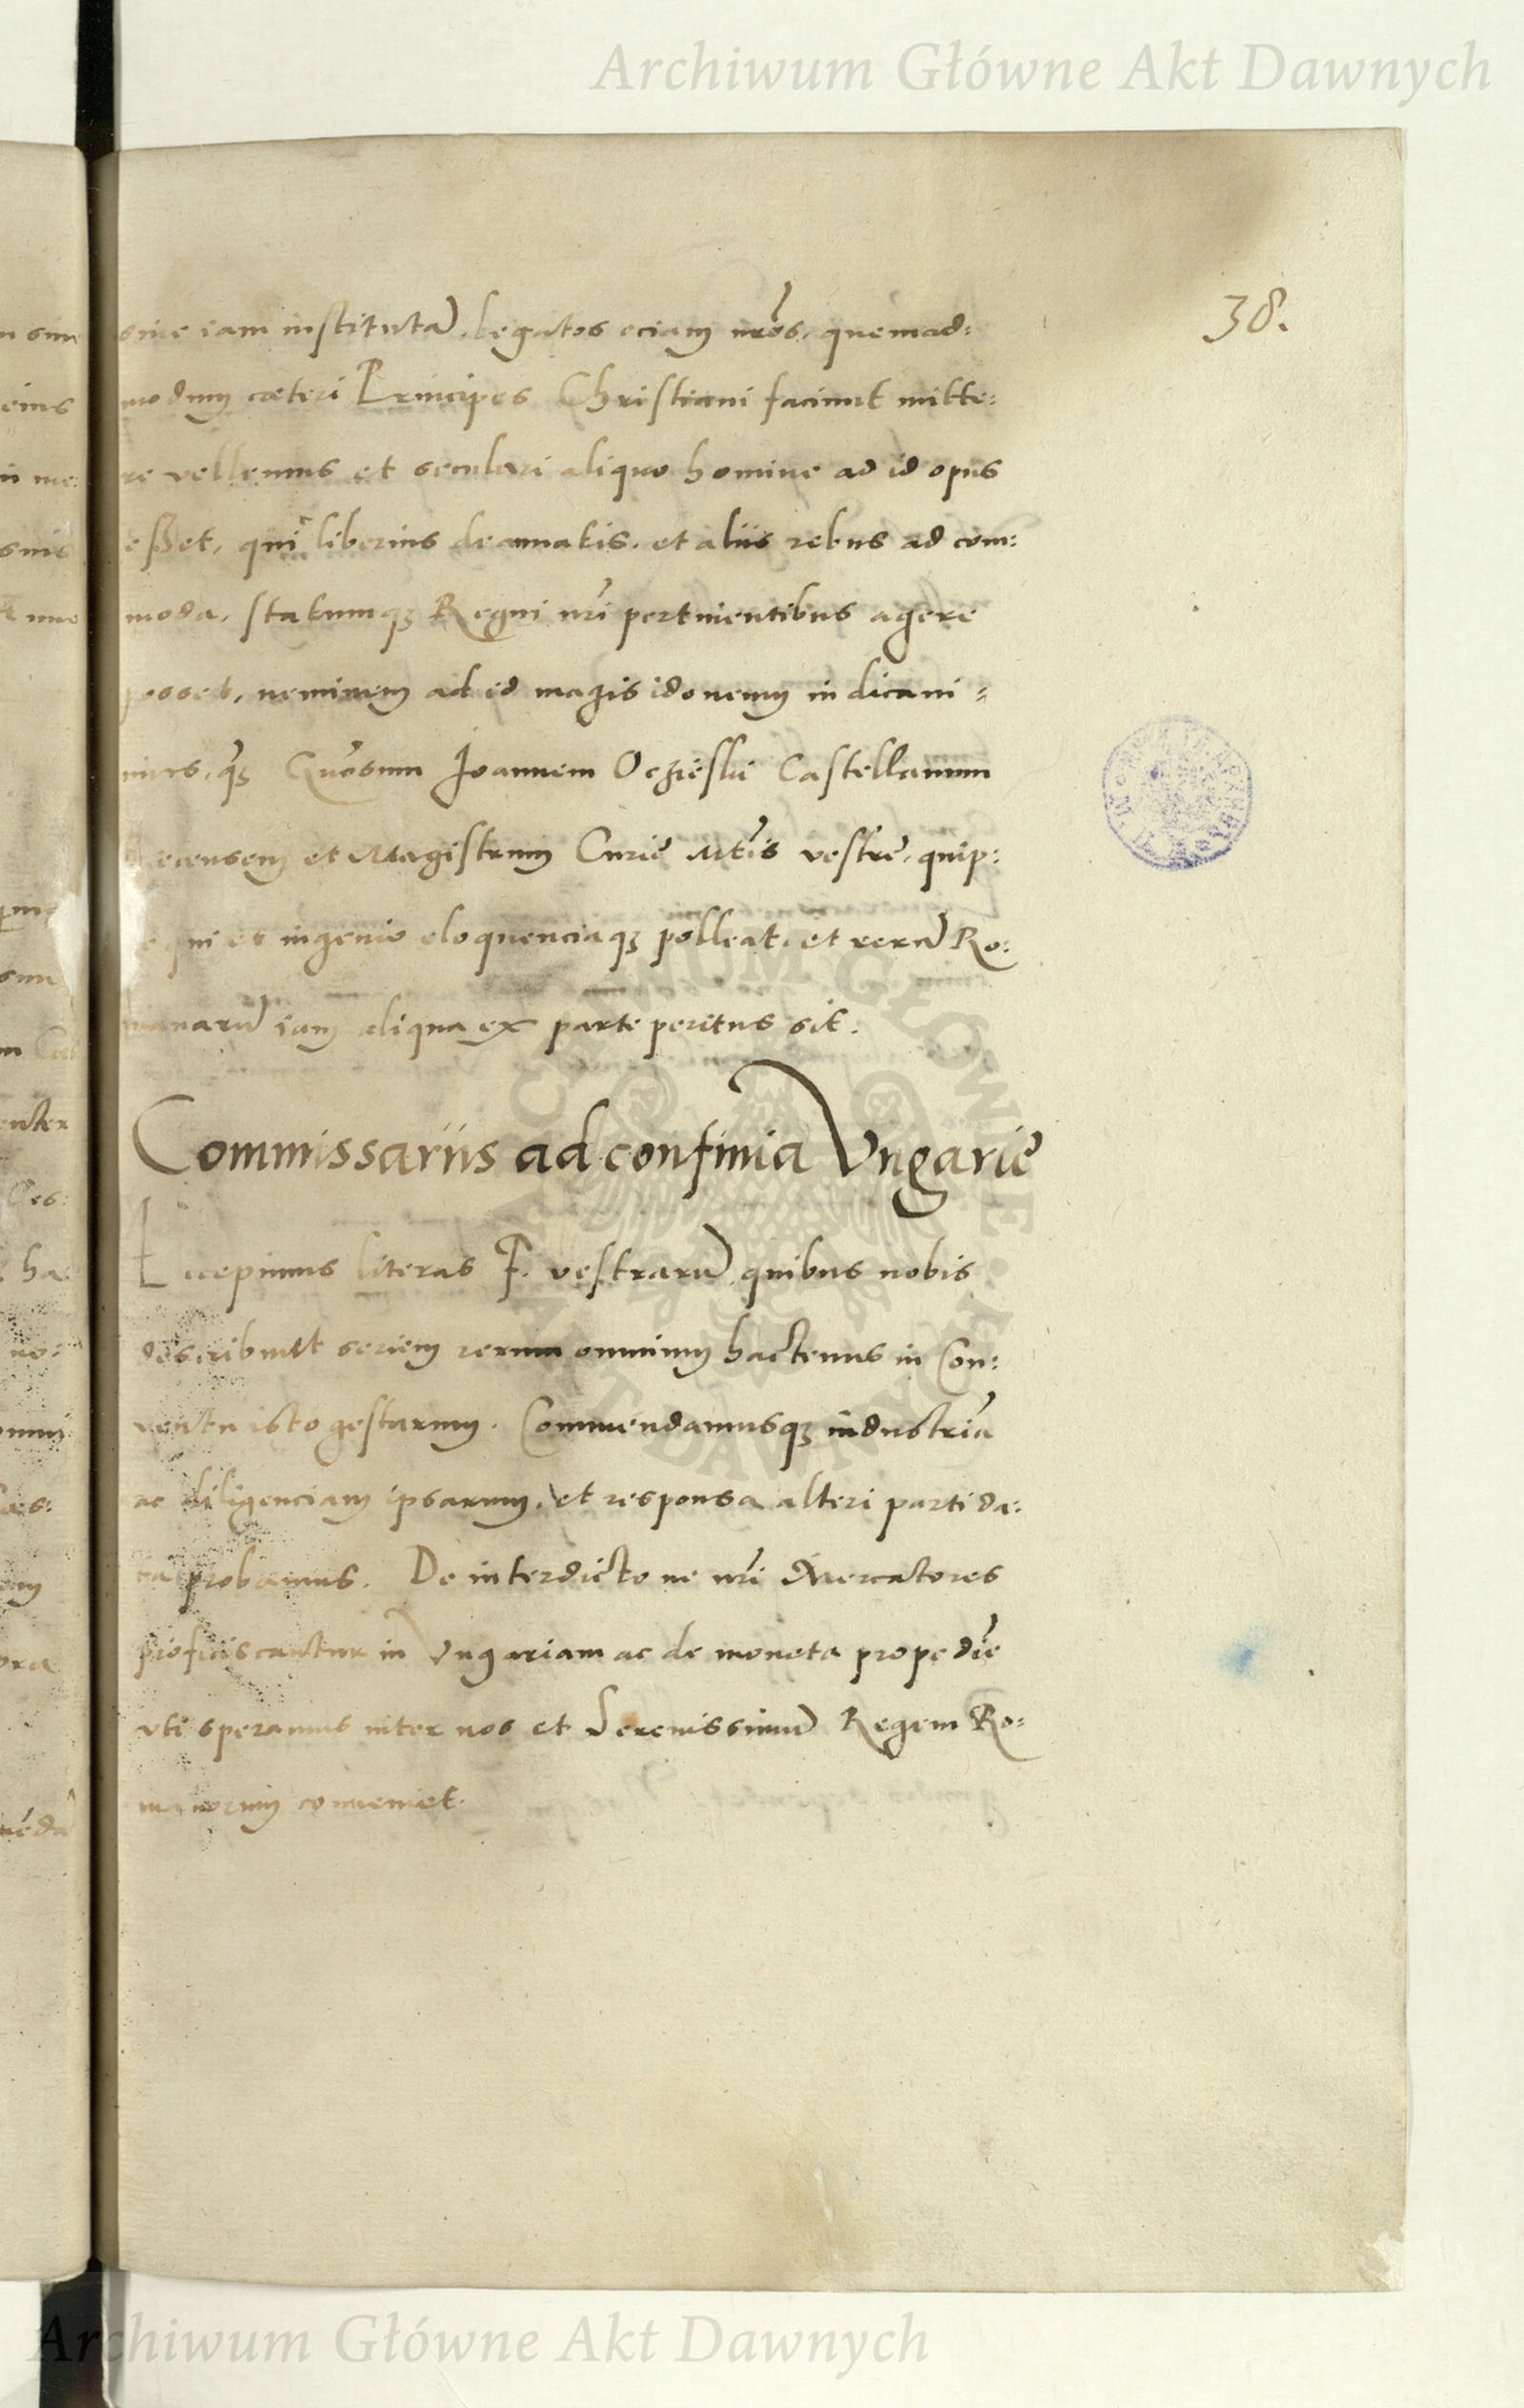 Archiwum Główne Akt Dawnych
38.
sive iam institutã. Legatos eciam nrõs, quemad:
modum cæteri Principes Christiani faciunt mitte:
re vellemus et seculari aliquo homine ad id opus
esset, qui liberius de annatis. et aliis rebus ad com:
moda, statumq₃ Regni nrĩ pertinentibus agere
posset, neminem ad id magis idoneum indicavi=
mus, q̃₃ Joannem Oczieski Castellanum
et Magistrum Curie Mtĩs vestre, quip:
e qui et ingenio eloquenciaq₃ polleat, et rerũ Ro:
manarũ iam aliqua ex parte peritus sit.
Commissariis ad confinia Ungarie
Accepimus literas F. vestrarũ quibus nobis
describunt seriem rerum omnium hactenus in Con:
ventu isto gestarum. Commendamusq₃ industriã
ac diligenciam ipsarum, et responsa alteri parti da:
ta probamus. De interdicto ne nrĩ Mercatores
proficiscantur in Ungariam ac de moneta propediẽ
uti speramus inter nos et Serenissimũ Regem Ro:
manorum conveniet.
Archiwum Główne Akt Dawnych